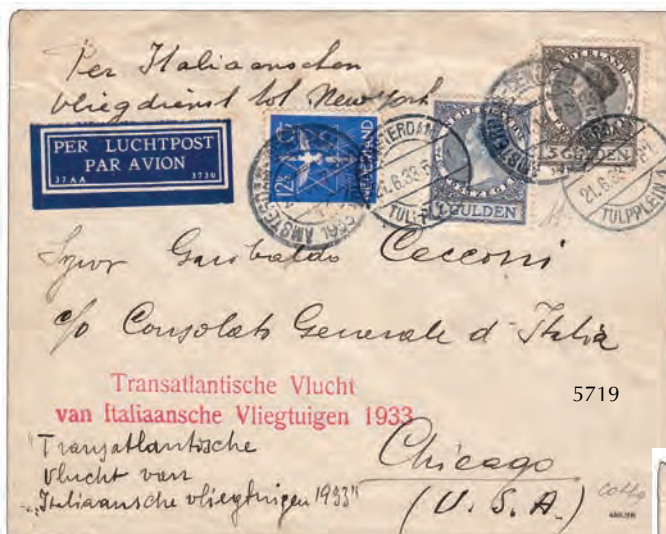 Per Italiaanschen
vliegdienst tot New York
PER LUCHTPOST
PAR AVION
37AA 3730
12½
NEDERLAND
AMSTERDAM
21.6.33
1 GULDEN
NEDERLAND
5 GULDEN
21.6.33
TULPPLEIN
Garibaldo Cecconi
c/o Consolato Generale d'Italia
Transatlantische Vlucht
van Italiaansche Vliegtuigen 1933
5719
"Transatlantische
vlucht van
Italiaansche vliegtuigen 1933"
Chicago
(U.S.A.)